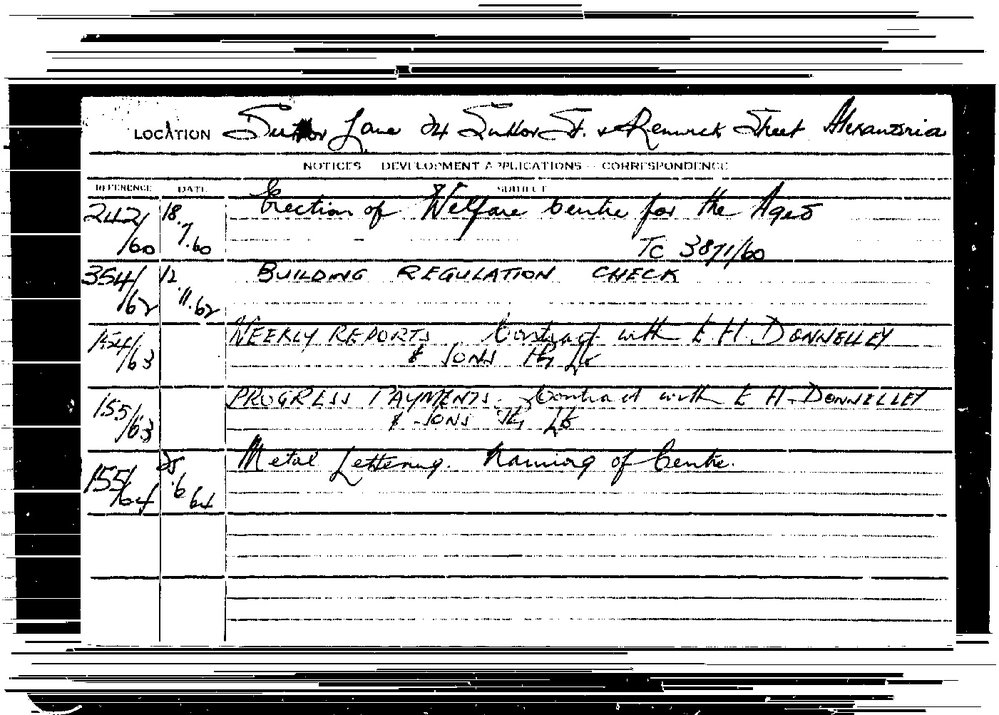 LOCATION Suttor Lane 24 Suttor St. & Renwick Street Alexandria
NOTICES DEVELOPMENT APPLICATIONS CORRESPONDENCE
REFERENCE DATE SUBJECT
242/60 18.7.60 Erection of Welfare Centre for the Aged
TC 3871/60
354/62 12.11.62 BUILDING REGULATION CHECK
154/63 WEEKLY REPORTS. Contract with E H. DONNELLEY
& SONS Pty Ltd
155/63 PROGRESS PAYMENTS. Contract with E H. DONNELLEY
& SONS Pty Ltd
155/64 25.6.64 Metal Lettering. Naming of Centre.